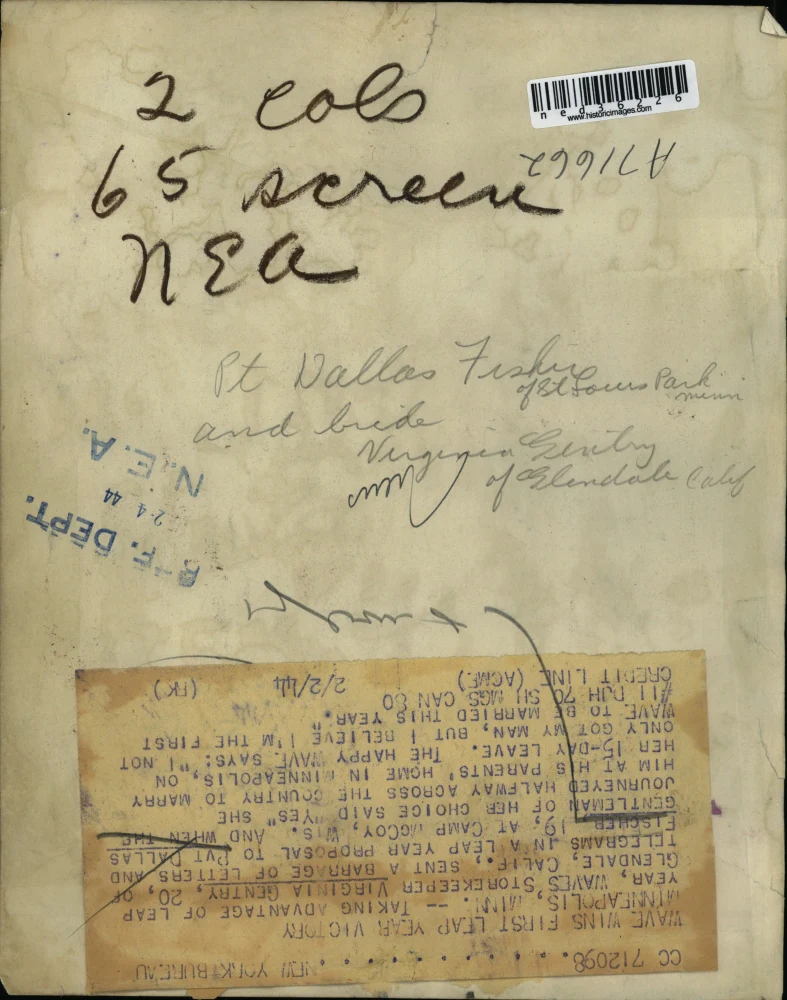 2 cols
65 screen
NEA
ned36226
www.historicimages.com
A71662
Pt Dallas Fisher
of St Louis Park
Minn
and bride
Virginia Gentry
of Glendale Calif
N.E.A.
2 4 44
REF. DEPT.
CC 712098 . . . . . . . . . . NEW YORK BUREAU
WAVE WINS FIRST LEAP YEAR VICTORY
MINNEAPOLIS, MINN. -- TAKING ADVANTAGE OF LEAP
YEAR, WAVES STOREKEEPER VIRGINIA GENTRY, 20, OF
GLENDALE, CALIF., SENT A BARRAGE OF LETTERS AND
TELEGRAMS IN A LEAP YEAR PROPOSAL TO PVT DALLAS
FISCHER 19, AT CAMP MCCOY, WIS. AND WHEN THE
GENTLEMAN OF HER CHOICE SAID "YES" SHE
JOURNEYED HALFWAY ACROSS THE COUNTRY TO MARRY
HIM AT HIS PARENTS' HOME IN MINNEAPOLIS, ON
HER 15-DAY LEAVE. THE HAPPY WAVE SAYS: "I NOT
ONLY GOT MY MAN, BUT I BELIEVE I'M THE FIRST
WAVE TO BE MARRIED THIS YEAR."
#11 DJH 70 SH MGS CAN 80
CREDIT LINE (ACME) 2/2/44 (FK)